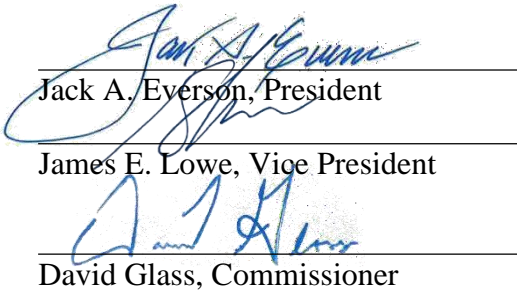 Jack A. Everson
Jack A. Everson, President
James E. Lowe, Vice President
David Glass
David Glass, Commissioner